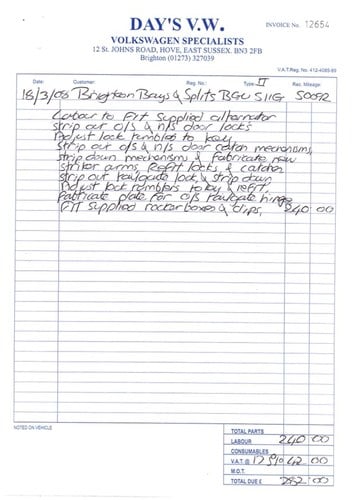 DAY'S V.W.
VOLKSWAGEN SPECIALISTS
12 St. JOHNS ROAD, HOVE, EAST SUSSEX. BN3 2FB
Brighton (01273) 327039
INVOICE No. 12654
V.A.T. Reg. No. 412-4085-65
Date: Customer: Reg. No.: Type: Rec. Mileage:
18/3/08 Brighton Bays & Splits BGU 511G II 50092
Labour to Fit Supplied alternator
strip out o/s & n/s door locks
Adjust lock tumblers to key
strip out o/s & n/s door catch mechanisms,
strip down mechanisms & Fabricate new
striker arms, Refit locks & catches
strip out tailgate lock, & strip down
Adjust lock tumblers to key & refit.
Fabricate plate for o/s tailgate hinge
Fit supplied rocker boxes & clips. 240 00
NOTES ON VEHICLE
TOTAL PARTS
LABOUR 240 00
CONSUMABLES
V.A.T. @ 17.5% 42 00
M.O.T.
TOTAL DUE £ 282 00